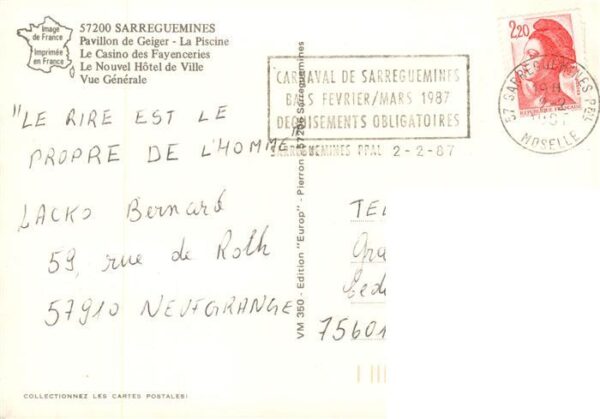 Image
de France
Imprimée
en France
57200 SARREGUEMINES
Pavillon de Geiger - La Piscine
Le Casino des Fayenceries
Le Nouvel Hôtel de Ville
Vue Générale
2,20
CARNAVAL DE SARREGUEMINES
BALS FEVRIER/MARS 1987
DEGUISEMENTS OBLIGATOIRES
SARREGUEMINES PPAL 2-2-87
57 SARREGUEMINES PPAL
MOSELLE
"LE RIRE EST LE
PROPRE DE L'HOMME"
LACKO Bernard
59, rue de Roth
57910 NEUFGRANGE
VM 350 - Edition "Europ" - Pierron - 57206 Sarreguemines
TEL
Gra
Ced
75601
COLLECTIONNEZ LES CARTES POSTALES!